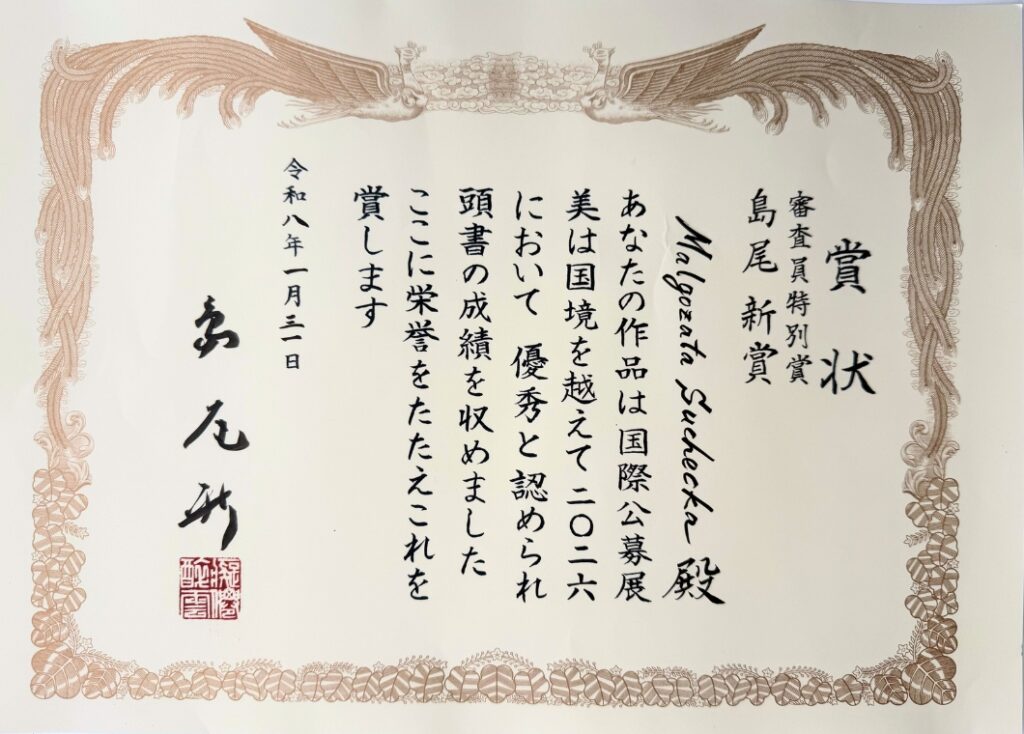 賞状
審査員特別賞
島尾 新賞
Malgozata Suchecka 殿
あなたの作品は国際公募展
美は国境を越えて二〇二六
において 優秀と認められ
頭書の成績を収めました
ここに栄誉をたたえこれを
賞します
令和八年一月三一日
島尾新